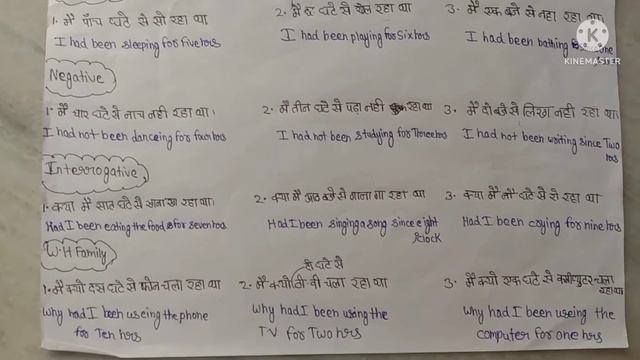 1. मैं पाँच घंटे से सो रहा था
2. मैं छः घंटे से खेल रहा था
3. मैं एक बजे से नहा रहा था
I had been sleeping for five hrs
I had been playing for Six hrs
I had been bathing
KINEMASTER
Negative
1. मैं चार घंटे से नाच नहीं रहा था।
2. मैं तीन घंटे से पढ़ा नहीं रहा था
3. मैं दो बजे से लिख नहीं रहा था।
I had not been danceing for four hrs
I had not been studying for Three hrs
I had not been writing since Two
hrs
Interrogative
1. क्या मैं सात घंटे से खाना खा रहा था।
2. क्या मैं आठ बजे से गाना गा रहा था
3. क्या मैं नौ घंटे से रो रहा था
Had I been eating the food for seven hrs
Had I been singing a song since eight
clock
Had I been crying for nine hrs
W.H Family
1. मैं क्यो दस घंटे से फोन चला रहा था
दो घंटे से
2. मैं क्यो टी वी चला रहा था
3. मैं क्यो एक घंटे से कम्प्युटर चला
रहा था
Why had I been useing the phone
for Ten hrs
Why had I been using the
TV for Two hrs
Why had I been useing the
computer for one hrs